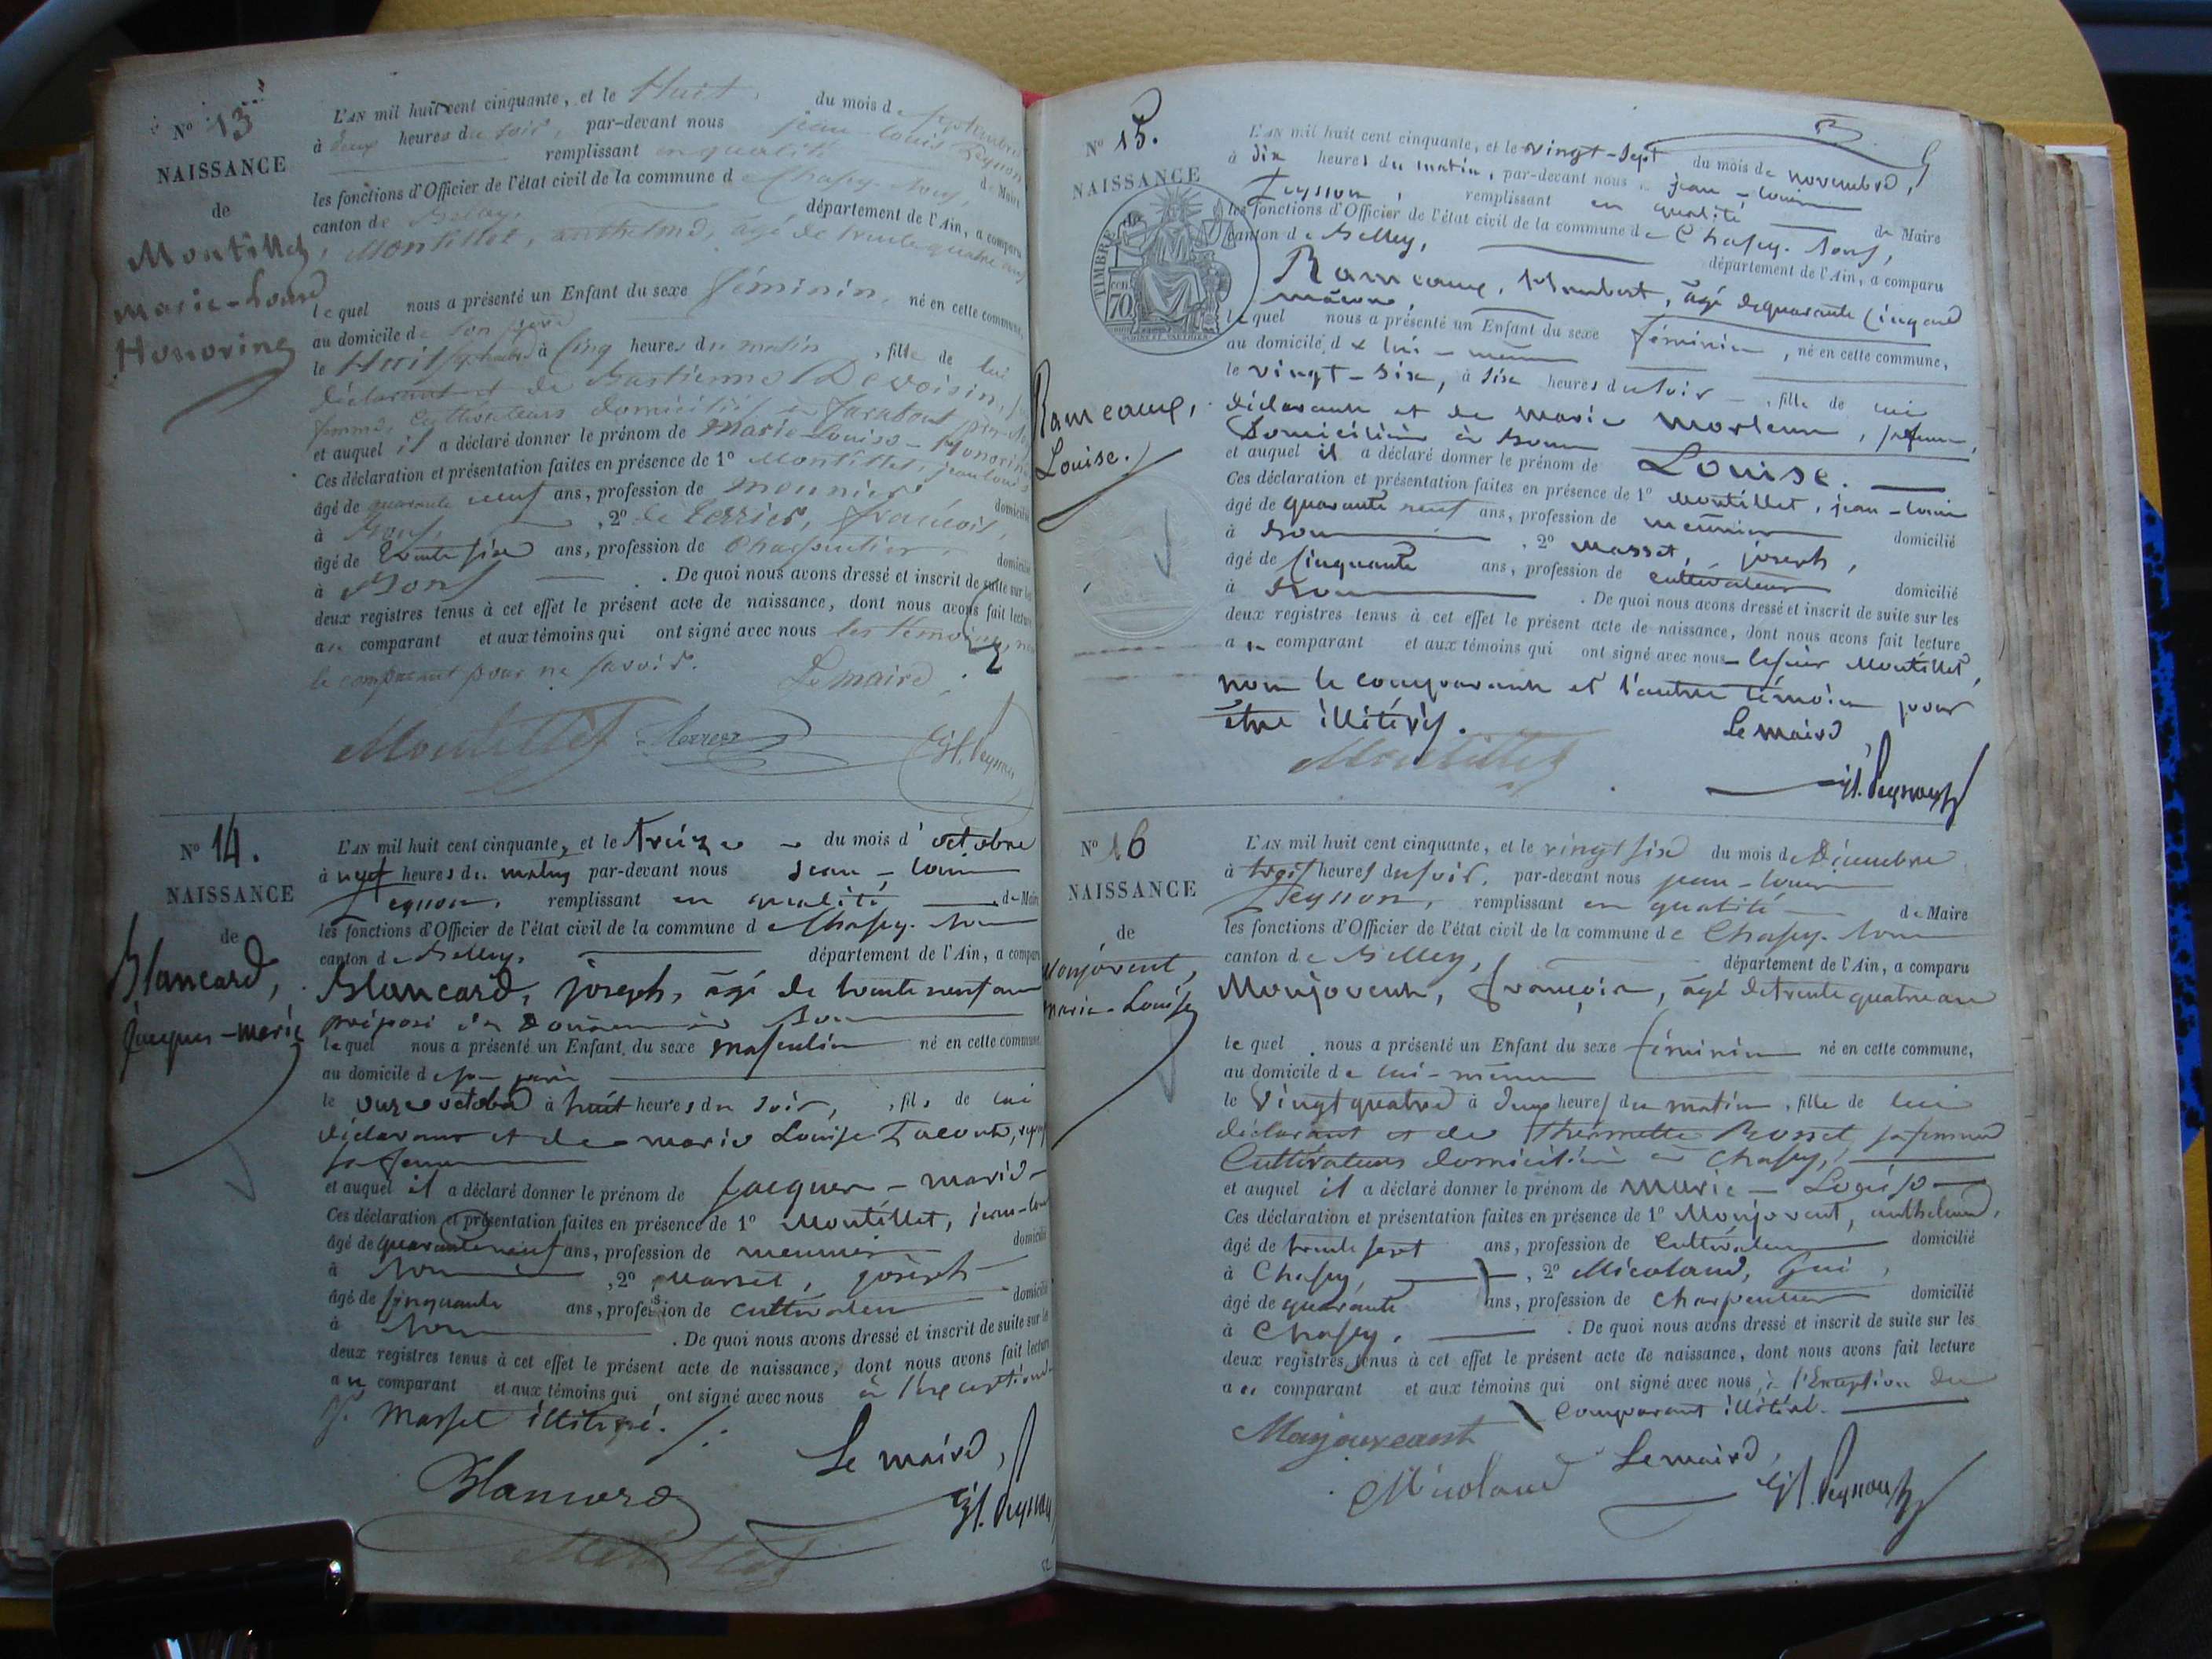 N° 13
NAISSANCE
de
Montillet,
Marie-Louise
Honorine
L'AN mil huit cent cinquante, et le Huit du mois de septembre
à deux heures du soir, par-devant nous jean-Louis Peysson
remplissant en qualité de Maire
les fonctions d'Officier de l'état civil de la commune de Chasey-Bons,
canton de Belley, département de l'Ain, a comparu
Montillet, anthelme, âgé de trente quatre ans
lequel nous a présenté un Enfant du sexe féminin, né en cette commune,
au domicile de son père
le Huit à Cinq heures du matin, fille de lui
déclarant et de Bastienne Devoisin, sa
femme, Cultivateurs domiciliés
et auquel il a déclaré donner le prénom de Marie-Louise-Honorine
Ces déclaration et présentation faites en présence de 1° Montillet, jean Louis
âgé de quarante neuf ans, profession de meunier domicilié
à Bons, 2° françois,
âgé de trente six ans, profession de Charpentier, domicilié
à Bons. De quoi nous avons dressé et inscrit de suite sur les
deux registres tenus à cet effet le présent acte de naissance, dont nous avons fait lecture
au comparant et aux témoins qui ont signé avec nous les témoins, non
le comparant pour ne savoir. Le maire,
Montillet
N° 14.
NAISSANCE
de
Blancard,
Jacques-marie
L'AN mil huit cent cinquante, et le treize du mois d'octobre
à neuf heures du matin par-devant nous Jean-Louis
Peysson, remplissant en qualité de Maire
les fonctions d'Officier de l'état civil de la commune de Chasey-Bons
canton de Belley, département de l'Ain, a comparu
Blancard, joseph, âgé de trente neuf ans
préposé des Douanes à Bons
lequel nous a présenté un Enfant du sexe masculin né en cette commune
au domicile de son père
le onze octobre à huit heures du soir, fils de lui
déclarant et de marie Louise
sa femme
et auquel il a déclaré donner le prénom de Jacques-marie
Ces déclaration et présentation faites en présence de 1° Montillet, jean-Louis
âgé de quarante neuf ans, profession de meunier domicilié
à Bons, 2° Masset, joseph
âgé de cinquante ans, profession de cultivateur domicilié
à Bons. De quoi nous avons dressé et inscrit de suite sur les
deux registres tenus à cet effet le présent acte de naissance, dont nous avons fait lecture
au comparant et aux témoins qui ont signé avec nous à l'exception
Masset illitéré. Le maire,
Blancard
Montillet
N° 15.
NAISSANCE
de
TIMBRE
70
Rameaux,
Louise.
L'AN mil huit cent cinquante, et le vingt-sept du mois de novembre,
à dix heures du matin, par-devant nous jean-Louis
Peysson, remplissant en qualité de Maire
les fonctions d'Officier de l'état civil de la commune de Chasey-Bons,
canton de Belley, département de l'Ain, a comparu
Rameaux, Humbert, âgé de quarante cinq ans
maçon,
lequel nous a présenté un Enfant du sexe féminin, né en cette commune,
au domicile de lui-même
le vingt-six, à six heures du soir, fille de lui
déclarant et de marie, sa femme,
Domiciliés à Bons
et auquel il a déclaré donner le prénom de Louise.
Ces déclaration et présentation faites en présence de 1° Montillet, jean-Louis
âgé de quarante neuf ans, profession de meunier domicilié
à Bons, 2° Masset, joseph,
âgé de Cinquante ans, profession de cultivateur domicilié
à Bons. De quoi nous avons dressé et inscrit de suite sur les
deux registres tenus à cet effet le présent acte de naissance, dont nous avons fait lecture
au comparant et aux témoins qui ont signé avec nous le sieur Montillet,
non le comparant et l'autre témoin pour
être illitérés. Le maire,
Montillet
N° 16
NAISSANCE
de
Monjovent,
marie-Louise
L'AN mil huit cent cinquante, et le vingt six du mois de Décembre
à trois heures du soir, par-devant nous jean-Louis
Peysson, remplissant en qualité de Maire
les fonctions d'Officier de l'état civil de la commune de Chasey-Bons
canton de Belley, département de l'Ain, a comparu
Monjovent, françois, âgé de trente quatre ans
lequel nous a présenté un Enfant du sexe féminin né en cette commune,
au domicile de lui-même
le vingt quatre à deux heures du matin, fille de lui
déclarant et de Thérmette Rosset, sa femme
Cultivateurs domiciliés à Chasey,
et auquel il a déclaré donner le prénom de Marie-Louise
Ces déclaration et présentation faites en présence de 1° Monjovent, anthelme,
âgé de trente sept ans, profession de Cultivateur domicilié
à Chasey, 2° Micoland, Gui,
âgé de quarante ans, profession de Charpentier domicilié
à Chasey. De quoi nous avons dressé et inscrit de suite sur les
deux registres tenus à cet effet le présent acte de naissance, dont nous avons fait lecture
au comparant et aux témoins qui ont signé avec nous, à l'Exception du
Comparant illitéré.
Monjouvant
Micoland Le maire,